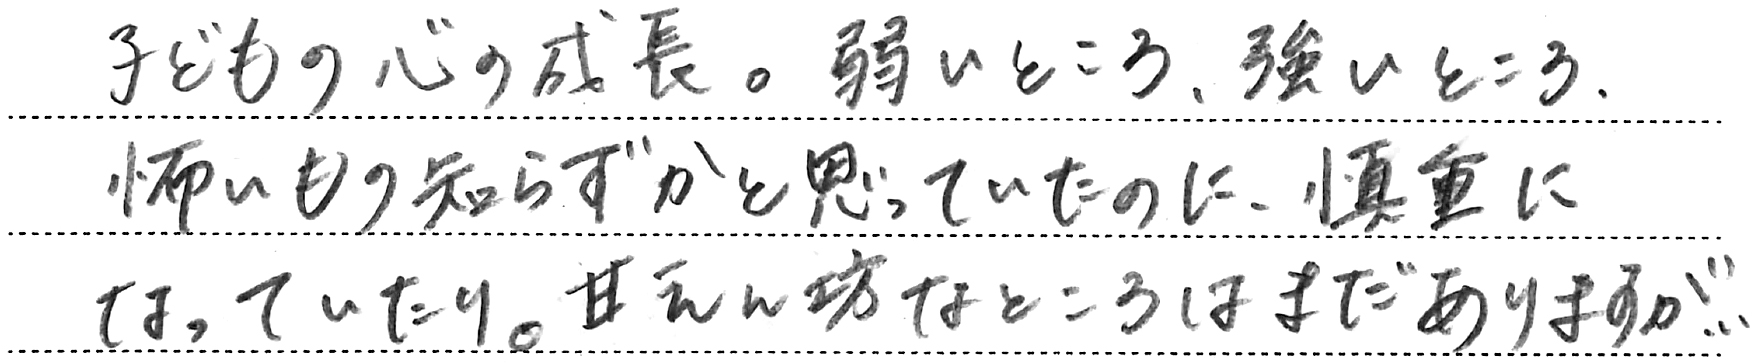 子どもの心の成長。弱いところ、強いところ、
怖いもの知らずかと思っていたのに、慎重に
なっていたり。甘えん坊なところはまだありますが…